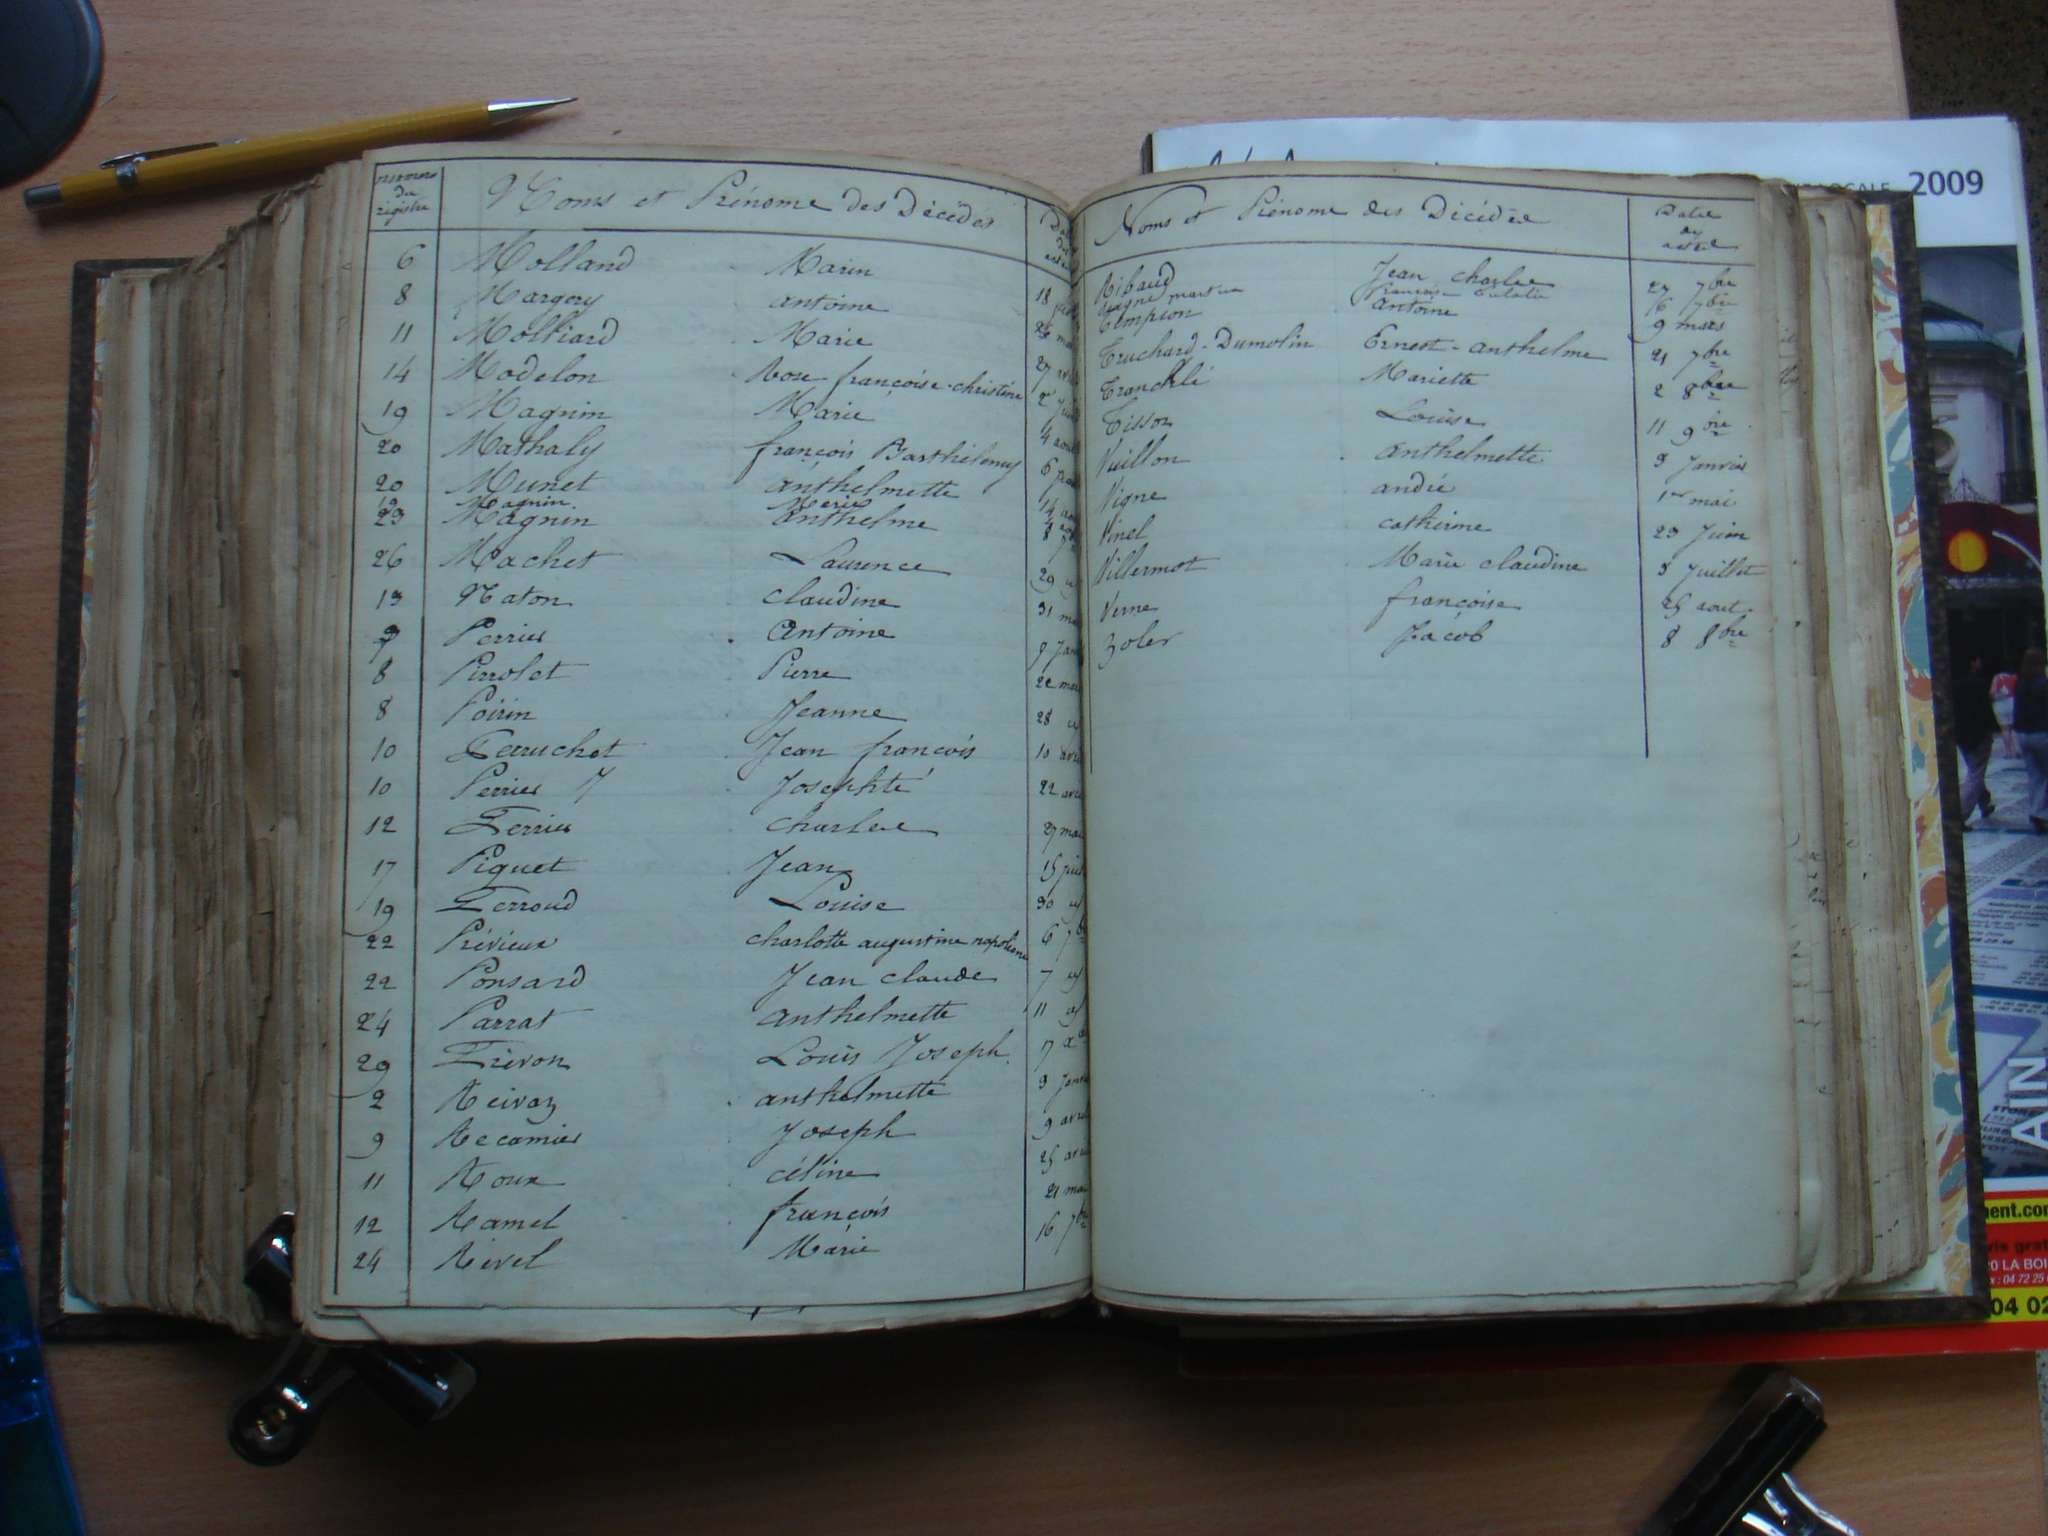 numeros
du
registre
Noms et Prénoms des Décédés
6 Molland Marin 18
8 Margery antoine
11 Molliard Marie
14 Modelon Rose françoise-christine
19 Magnin Marie 2
20 Mathaly françois Barthélemy 4
20 Munet anthelmette 6
19 Magnin Marie 14
23 Magnin anthelme 8
26 Machet Laurence 29
13 Naton claudine 31
Perrier Antoine
8 Pirrolet Pierre
8 Poirin Jeanne 28
10 Perruchet Jean françois 10
10 Perrier Josephte 22
12 Perrier charles 27
17 Piguet Jean 15
19 Perroud Louise 30
22 Prévieux charlotte augustine napoléone 6
22 Ponsard Jean claude 7
24 Parrat anthelmette 11
29 Piévon Louis Joseph 17
2 Reivaz anthelmette
9 Recamier Joseph 9
11 Roux céline 25
12 Ramel françois 21
24 Rivel Marie 16 7bre
Noms et Prénoms des Décédés
Date
des
actes
Ribaud Jean charles 27 7bre
16 7bre
Tempion antoine 9 mars
Truchard-Dumolin Ernest-anthelme 21 7bre
Tranchlé Mariette 2 8bre
Tisson Louise 11 9bre
Vuillon anthelmette 3 Janvier
Vigne andré 1er mai
Vinel catherine 23 Juin
Villermot Marie claudine 3 Juillet
Verne françoise 25 aout
Zoler Jacob 8 8bre
2009
AIN
04 02